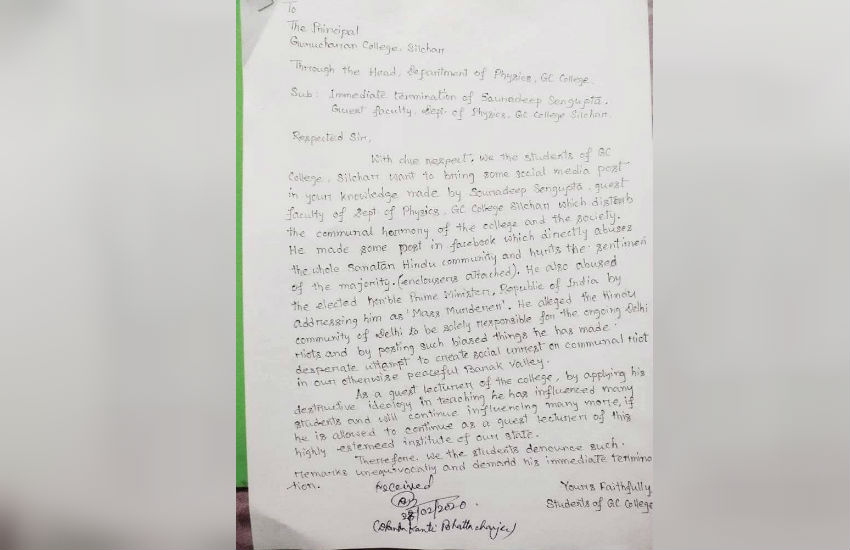 To
The Principal
Gurucharan College, Silchar
Through the Head, Department of Physics, GC College.
Sub: Immediate termination of Souradeep Sengupta,
Guest faculty, Dept. of Physics, GC College Silchar.
Respected Sir,
With due respect, we the students of GC
College, Silchar want to bring some social media post
in your knowledge made by Souradeep Sengupta, guest
faculty of Dept. of Physics, GC College Silchar which disturb
the communal hermony of the college and the society.
He made some post in facebook which directly abuses
the whole Sanatan Hindu community and hurts the sentimen
of the majority. (enclousers attached). He also abused
the elected hon'ble Prime Minister, Republic of India by
addressing him as 'Mass Murderer'. He alleged the Hindu
community of Delhi to be solely responsible for the ongoing Delhi
riots and by posting such biased things he has made
desperate attempt to create social unrest on communal riot
in our otherwise peaceful Barak Valley.
As a guest lecturer of the college, by applying his
destructive ideology in teaching he has influenced many
students and will continue influencing many more, if
he is allowed to continue as a guest lecturer of this
highly esteemed institute of our state.
Therefore, we the students denounce such
remarks unequivocally and demand his immediate termina
-tion.
Received
28/02/2020
Yours Faithfully
Students of GC College
Kanti Bhattacharjee)